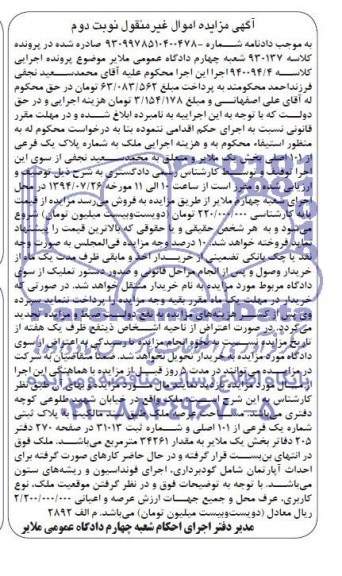 آگهی مزایده اموال غیرمنقول نوبت دوم
به موجب دادنامه شماره ۹۳۰۹۹۷۸۵۱۰۴۰۰۴۷۸- صادره شده در پرونده
کلاسه ۹۳۰۱۳۷ شعبه چهارم دادگاه عمومی ملایر موضوع پرونده اجرایی
کلاسه ۹۴۰۰۹۴/۴ اجرا این اجرا محکوم علیه آقای محمدسعید نجفی
فرزنداحمد محکومند به پرداخت مبلغ ۶۳/۰۸۳/۵۶۲ تومان در حق محکوم
له آقای علی اصفهانی و مبلغ ۳/۱۵۴/۱۷۸ تومان هزینه اجرایی و در حق
دولت که با توجه به این اجراییه به نامبرده ابلاغ شده و در مهلت مقرر
قانونی نسبت به اجرای حکم اقدامی ننموده بنا به درخواست محکوم له به
منظور استیفاء محکوم به و هزینه اجرایی ملک به شماره پلاک یک فرعی
از ۱۰۱ اصلی بخش یک ملایر و متعلق به محمدسعید نجفی از سوی این
اجرا توقیف و توسط کارشناس رسمی دادگستری به شرح ذیل توصیف و
ارزیابی شده و مقرر است از ساعت ۱۰ الی ۱۱ مورخه ۱۳۹۴/۰۷/۲۶ در محل
اجرای شعبه چهارم ملایر از طریق مزایده به فروش می‌رسد مزایده از قیمت
پایه کارشناسی ۲۲۰/۰۰۰/۰۰۰ تومان (دویست‌وبیست میلیون تومان) شروع
می‌شود و به هر شخص حقیقی و یا حقوقی که بالاترین قیمت را پیشنهاد
نماید فروخته خواهد شد. ۱۰ درصد وجه مزایده فی‌المجلس به صورت وجه
نقد یا چک بانکی تضمینی از خریدار اخذ و مابقی ظرف مدت یک ماه از
خریدار وصول و پس از انجام مراحل قانونی و صدور دستور تملیک از سوی
دادگاه مربوط مورد مزایده به نام خریدار منتقل خواهد شد. در صورتی که
خریدار در مهلت یک ماه مقرر بقیه وجه مزایده را پرداخت ننماید سپرده
وی پس از کسر هزینه‌های مزایده به نفع دولت ضبط و مزایده تجدید
می‌گردد. در صورت اعتراض از ناحیه اشخاص ذینفع ظرف یک هفته از
تاریخ مزایده نسبت به نحوه انجام مزایده تا رسیدگی به اعتراض از سوی
دادگاه مورد مزایده به خریدار تحویل نخواهد شد. ضمناً متقاضیان به شرکت
در مزایده می‌توانند در مدت ۵ روز قبل از مزایده با هماهنگی این اجرا
از مال مورد مزایده بازدید نمایند. مال مورد مزایده برابر نظر
کارشناس به این شرح است: ملک واقع در خیابان شهید طلوعی کوچه
دفتری می‌باشد. عرصه ملک طبق سند مالکیت به پلاک ثبتی
شماره یک فرعی از ۱۰۱ اصلی و شماره ثبت ۳۱۰۱۳ در صفحه ۲۷۰ دفتر
۲۰۵ دفاتر بخش یک ملایر به مقدار ۳۴۲۶۱ مترمربع می‌باشد. ملک فوق
در انتهای بن‌بست قرار گرفته و در حال حاضر کارهای صورت گرفته برای
احداث آپارتمان شامل گودبرداری، اجرای فونداسیون و ریشه‌های ستون
می‌باشد. با توجه به توضیحات فوق و در نظر گرفتن موقعیت ملک، نوع
کاربری، عرف محل و جمیع جهات ارزش عرصه و اعیانی ۲/۲۰۰/۰۰۰/۰۰۰
ریال معادل (دویست‌وبیست میلیون تومان) می‌باشد. م الف ۲۸۹۲
مدیر دفتر اجرای احکام شعبه چهارم دادگاه عمومی ملایر